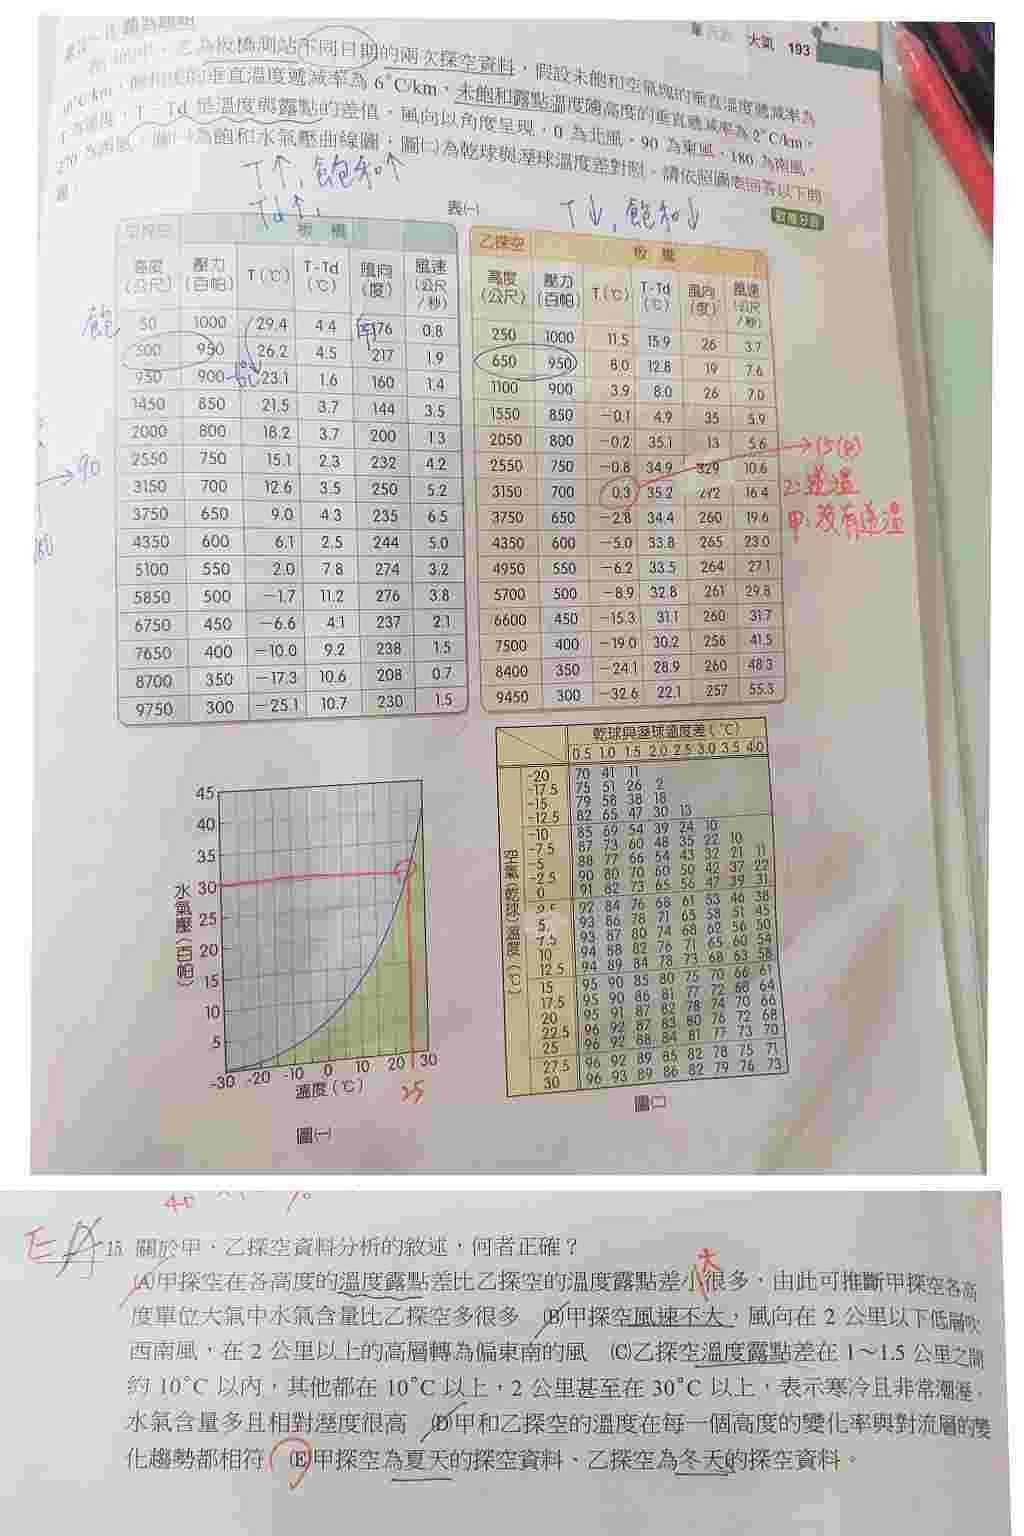 大氣 193
為板橋測站不同日期的兩次探空資料,假設未飽和空氣塊的垂直溫度遞減率為
垂直溫度遞減率為 6°C/km,未飽和露點溫度隨高度的垂直遞減率為 2°C/km,
T-Td 是溫度與露點的差值,風向以角度呈現,0 為北風,90 為東風,180 為南風,
270 為西風,圖㈠為飽和水氣壓曲線圖,圖㈡為乾球與溼球溫度差對照,請依照圖表回答以下問
題
T↑, 飽和↑
Td↑,
T↓, 飽和↓
表㈠
板橋
高度(公尺) 壓力(百帕) T(℃) T-Td(℃) 風向(度) 風速(公尺/秒)
50 1000 29.4 4.4 176 0.8
500 950 26.2 4.5 217 1.9
950 900 23.1 1.6 160 1.4
1450 850 21.5 3.7 144 3.5
2000 800 18.2 3.7 200 1.3
2550 750 15.1 2.3 232 4.2
3150 700 12.6 3.5 250 5.2
3750 650 9.0 4.3 235 6.5
4350 600 6.1 2.5 244 5.0
5100 550 2.0 7.8 274 3.2
5850 500 -1.7 11.2 276 3.8
6750 450 -6.6 4.1 237 2.1
7650 400 -10.0 9.2 238 1.5
8700 350 -17.3 10.6 208 0.7
9750 300 -25.1 10.7 230 1.5
乙探空 板橋
高度(公尺) 壓力(百帕) T(℃) T-Td(℃) 風向(度) 風速(公尺/秒)
250 1000 11.5 15.9 26 3.7
650 950 8.0 12.8 19 7.6
1100 900 3.9 8.0 26 7.0
1550 850 -0.1 4.9 35 5.9
2050 800 -0.2 35.1 13 5.6
2550 750 -0.8 34.9 329 10.6
3150 700 0.3 35.2 272 16.4
3750 650 -2.8 34.4 260 19.6
4350 600 -5.0 33.8 265 23.0
4950 550 -6.2 33.5 264 27.1
5700 500 -8.9 32.8 261 29.8
6600 450 -15.3 31.1 260 31.7
7500 400 -19.0 30.2 256 41.5
8400 350 -24.1 28.9 260 48.3
9450 300 -32.6 22.1 257 55.3
→15(D)
乙:逆溫
甲:沒有逆溫
→90
水氣壓(百帕)
45
40
35
30
25
20
15
10
5
-30 -20 -10 0 10 20 30
溫度(℃)
25
圖㈠
乾球與溼球溫度差(℃)
0.5 1.0 1.5 2.0 2.5 3.0 3.5 4.0
空氣(乾球)溫度(℃)
-20 70 41 11
-17.5 75 51 26 2
-15 79 58 38 18
-12.5 82 65 47 30 13
-10 85 69 54 39 24 10
-7.5 87 73 60 48 35 22 10
-5 88 77 66 54 43 32 21 11
-2.5 90 80 70 60 50 42 37 22
0 91 82 73 65 56 47 39 31
2.5 92 84 76 68 61 53 46 38
5 93 86 78 71 65 58 51 45
7.5 93 87 80 74 68 62 56 50
10 94 88 82 76 71 65 60 54
12.5 94 89 84 78 73 68 63 58
15 95 90 85 80 75 70 66 61
17.5 95 90 86 81 77 72 68 64
20 95 91 87 82 78 74 70 66
22.5 96 92 87 83 80 76 72 68
25 96 92 88 84 81 77 73 70
27.5 96 92 89 85 82 78 75 71
30 96 93 89 86 82 79 76 73
圖㈡
E 15. 關於甲、乙探空資料分析的敘述,何者正確?
(A)甲探空在各高度的溫度露點差比乙探空的溫度露點差小很多,由此可推斷甲探空各高
度單位大氣中水氣含量比乙探空多很多 (B)甲探空風速不大,風向在 2 公里以下低層吹
西南風,在 2 公里以上的高層轉為偏東南的風 (C)乙探空溫度露點差在 1～1.5 公里之間
約 10°C 以內,其他都在 10°C 以上,2 公里甚至在 30°C 以上,表示寒冷且非常潮溼,
水氣含量多且相對溼度很高 (D)甲和乙探空的溫度在每一個高度的變化率與對流層的變
化趨勢都相符 (E)甲探空為夏天的探空資料、乙探空為冬天的探空資料。